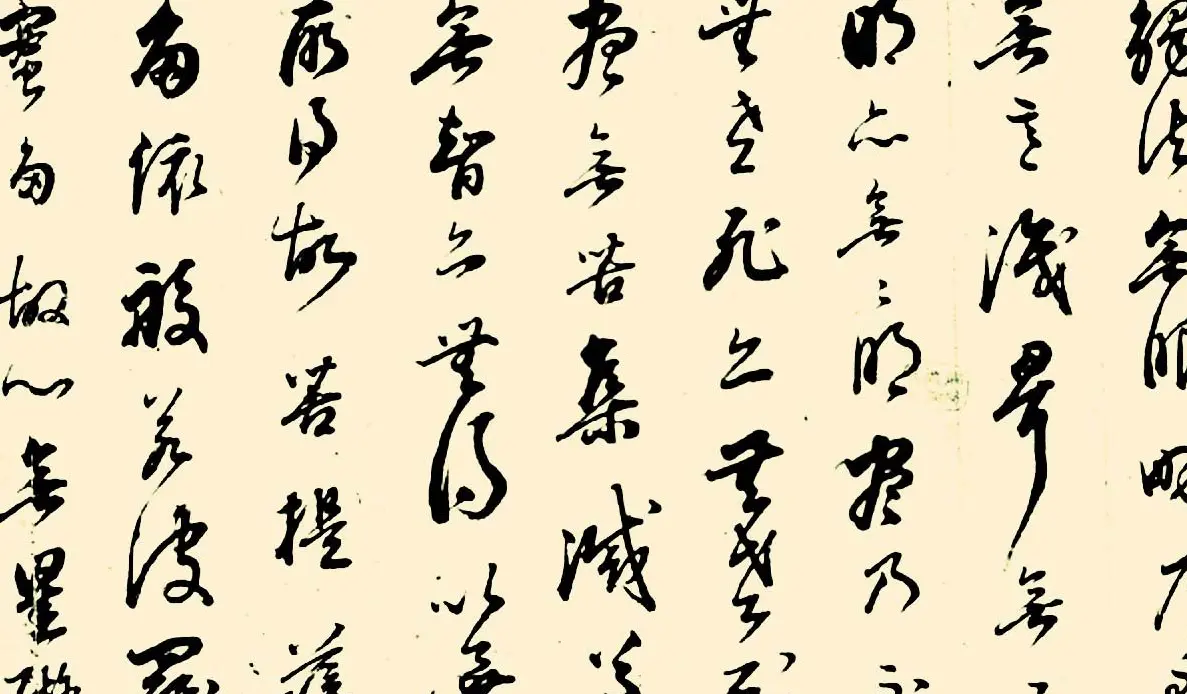 觸法無眼界乃
無意識界無
明亦無〻明盡乃
無老死亦無老死
盡無苦集滅道
無智亦無得以無
所得故菩提薩
依般若波羅
蜜多故心無罣礙